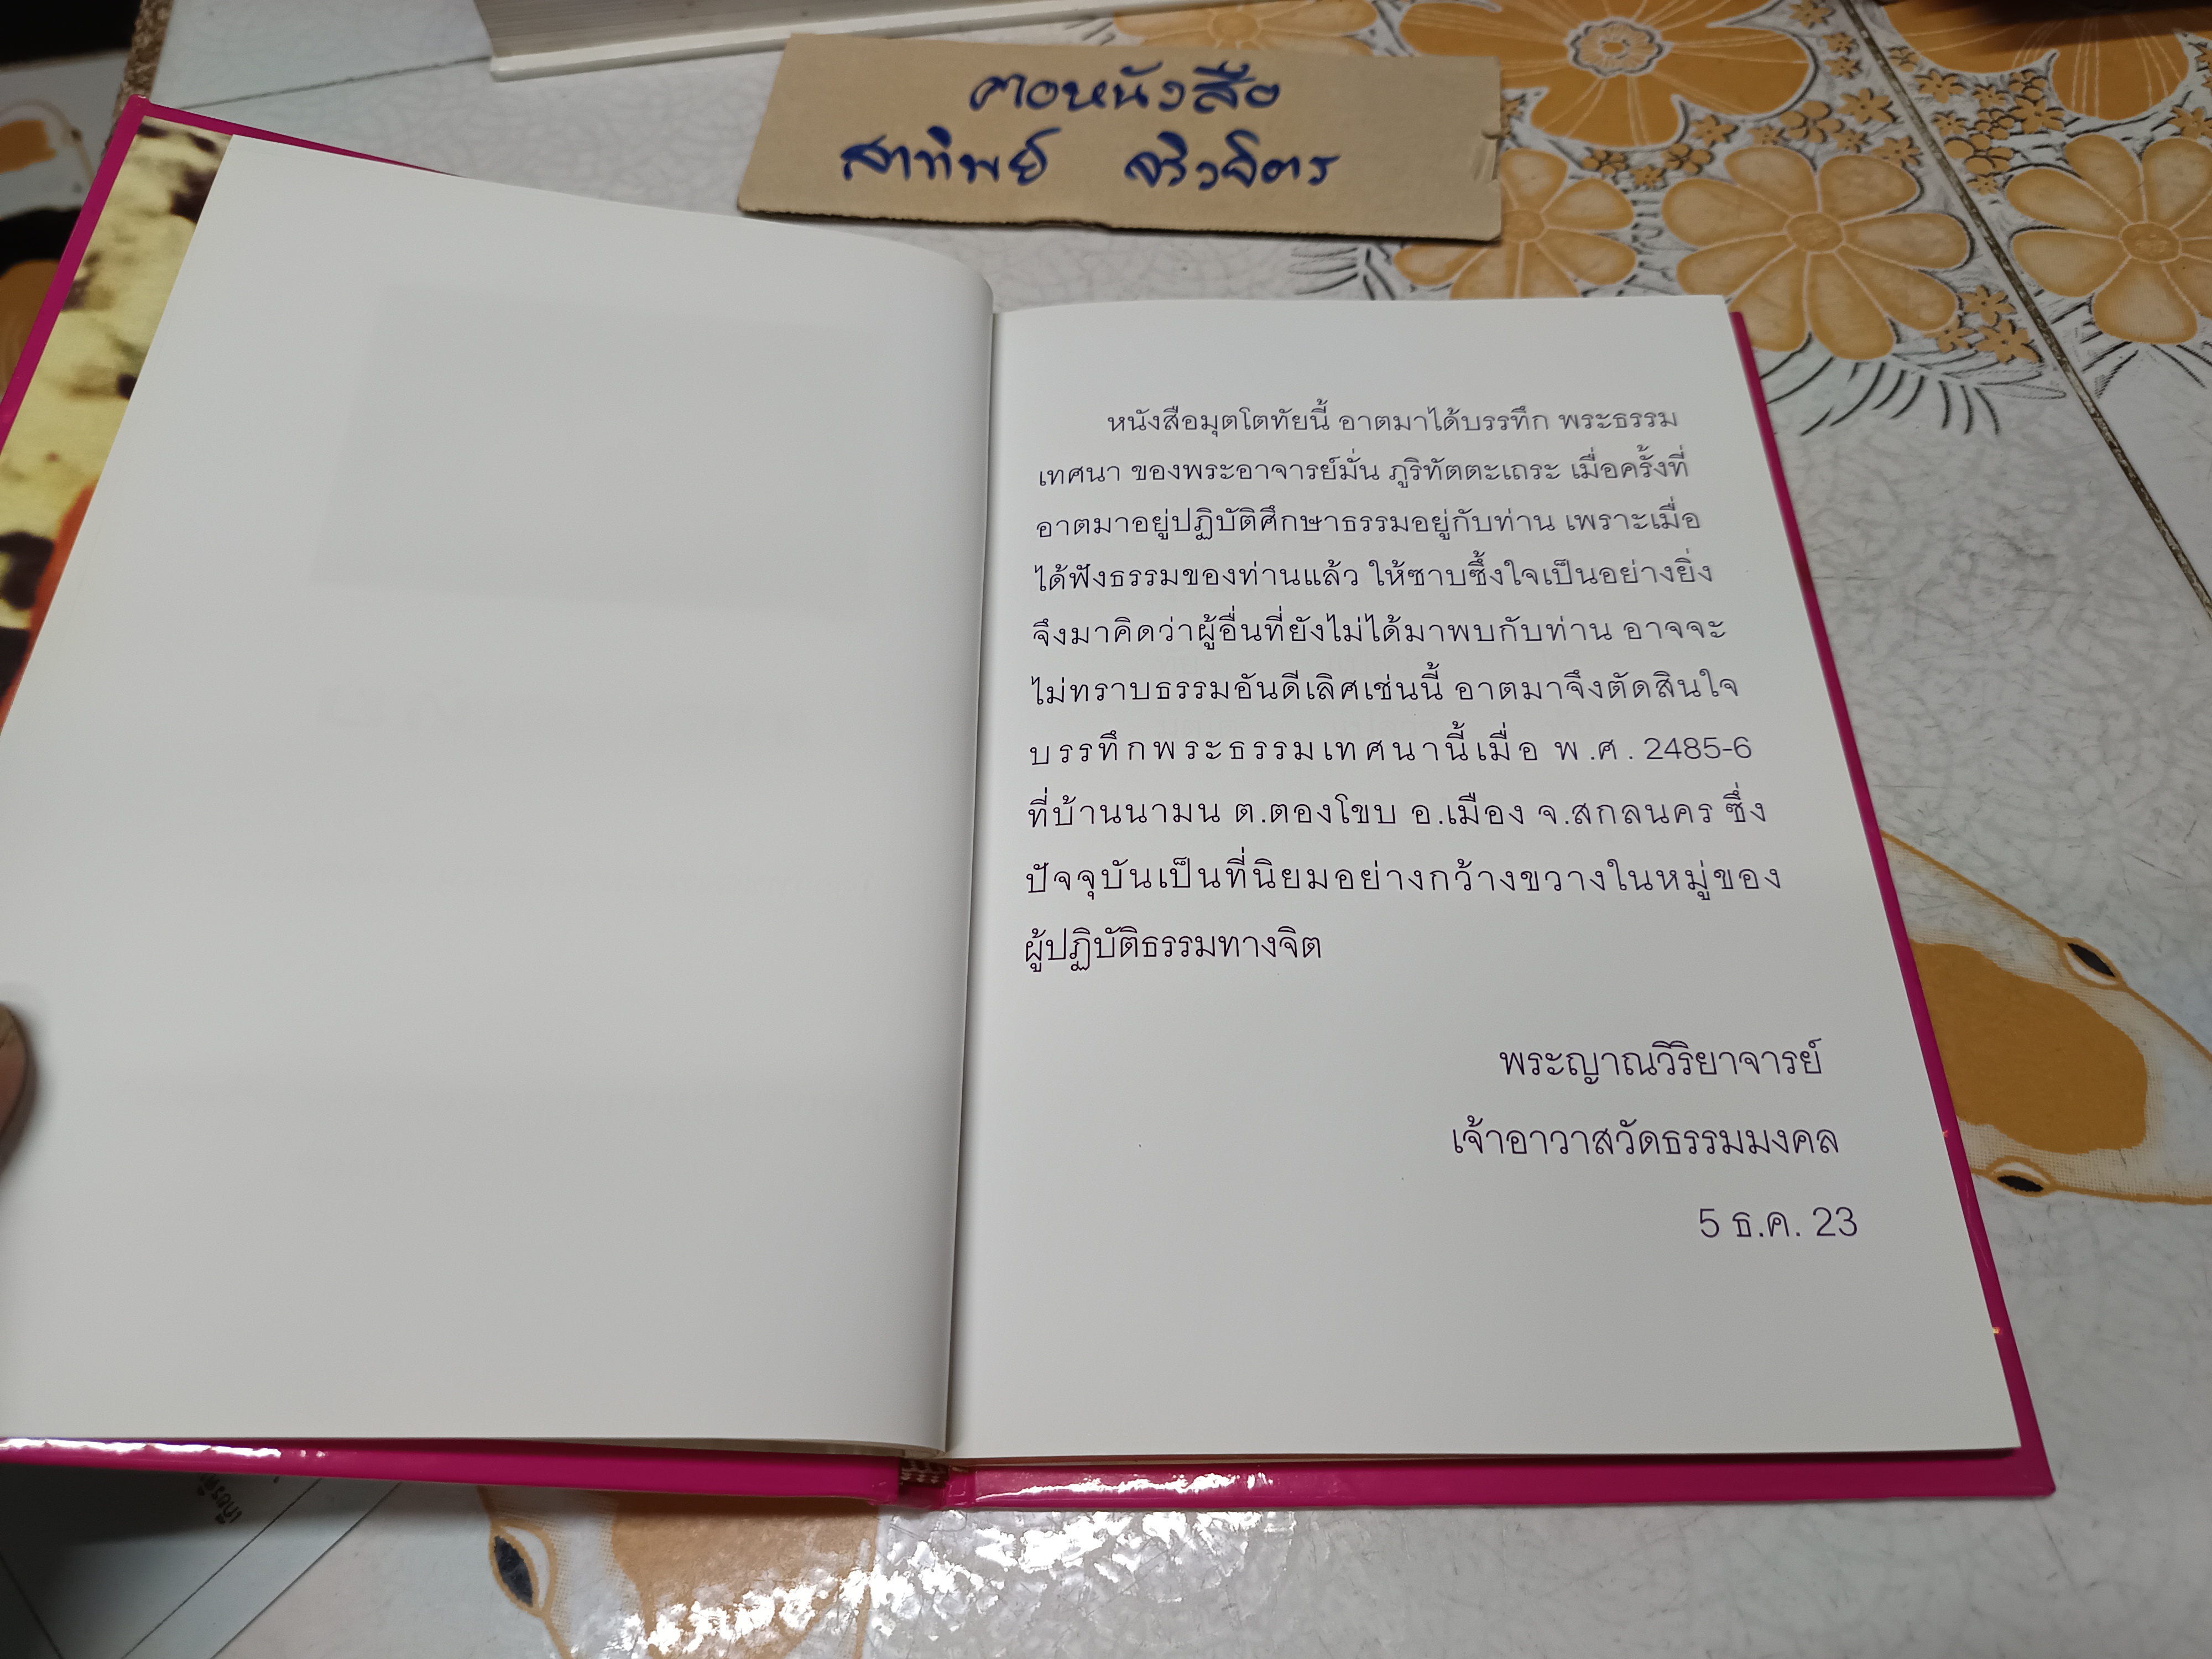 คอหนังสือ
สาทิพย์ จริงจิตร
หนังสือมุตโตทัยนี้ อาตมาได้บรรทึก พระธรรม
เทศนา ของพระอาจารย์มั่น ภูริทัตตะเถระ เมื่อครั้งที่
อาตมาอยู่ปฏิบัติศึกษาธรรมอยู่กับท่าน เพราะเมื่อ
ได้ฟังธรรมของท่านแล้ว ให้ซาบซึ้งใจเป็นอย่างยิ่ง
จึงมาคิดว่าผู้อื่นที่ยังไม่ได้มาพบกับท่าน อาจจะ
ไม่ทราบธรรมอันดีเลิศเช่นนี้ อาตมาจึงตัดสินใจ
บรรทึกพระธรรมเทศนานี้เมื่อ พ.ศ. 2485-6
ที่บ้านนามน ต.ตองโขบ อ.เมือง จ.สกลนคร ซึ่ง
ปัจจุบันเป็นที่นิยมอย่างกว้างขวางในหมู่ของ
ผู้ปฏิบัติธรรมทางจิต
พระญาณวิริยาจารย์
เจ้าอาวาสวัดธรรมมงคล
5 ธ.ค. 23